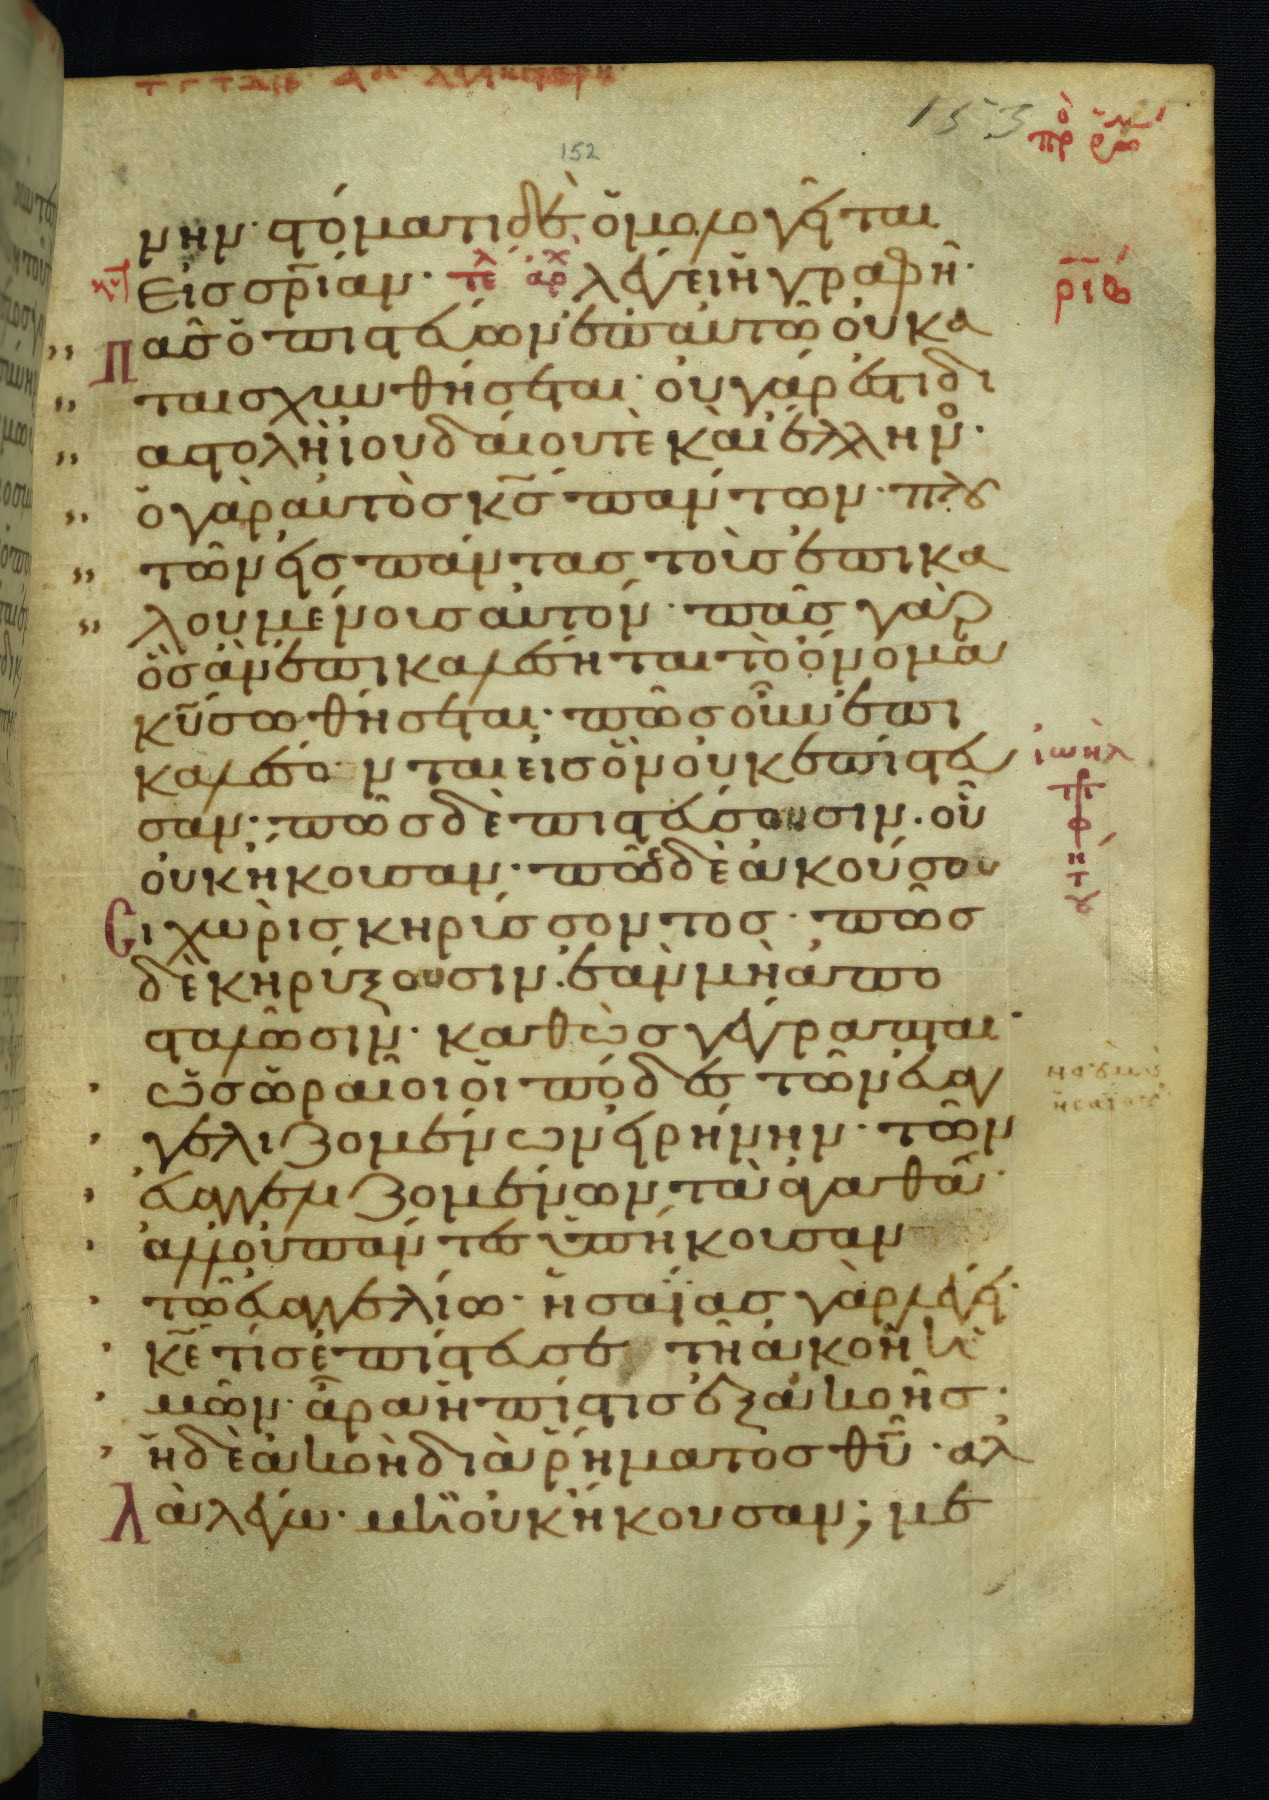 153
152
νην· στόματι δὲ ὁμολογεῖται
εἰς σρ̅ίαν· τέλ ἀρχ λέγει ἡ γραφῆ·
Πᾶσ ὁ πιστεύων ἐπ' αὐτῶ οὐ κα
ταισχυνθήσεται· οὐ γάρ ἐστι δι
αστολὴ ἰουδαίου τὲ καὶ ἕλληνο·
ὁ γὰρ αὐτὸσ κ̅σ πάντων· πλου
τῶν εἰς πάντας τοὺσ ἐπικα
λουμένους αὐτόν· πᾶσ γὰρ
ὃσ ἂν ἐπικαλέσηται τὸ ὄνομα
κ̅υ σωθήσεται· πῶσ οὖν ἐπι
καλέσονται εἰσ ὃν οὐκ ἐπίστευ
σαν· πῶσ δὲ πιστεύσουσιν· οὗ
οὐκ ἤκουσαν· πῶσ δὲ ἀκούσου
Σι χωρὶσ κηρύσσοντοσ· πῶσ
δὲ κηρύξουσιν· ἐὰν μὴ ἀπο
σταλῶσιν· καθὼσ γέγραπται·
ὡσ ὡραῖοι οἱ πόδεσ τῶν εὐαγ
γελιζομένων εἰρήνην· τῶν
εὐαγγελιζομένων τὰ ἀγαθά·
ἀλλ' οὐ πάντεσ ὑπήκουσαν
τῶ εὐαγγελίω· ἡσαΐασ γὰρ λέγει·
κ̅ε τίσ ἐπίστευσε τῆ ἀκοῆ ἡ
μῶν· ἄρα ἡ πίστισ ἐξ ἀκοῆσ·
ἡ δὲ ἀκοὴ διὰ ῥήματοσ θ̅υ· ἀλ
Λὰ λέγω· μὴ οὐκ ἤκουσαν; με
ρ̅ι̅β
ἰωὴλ
προφήτου